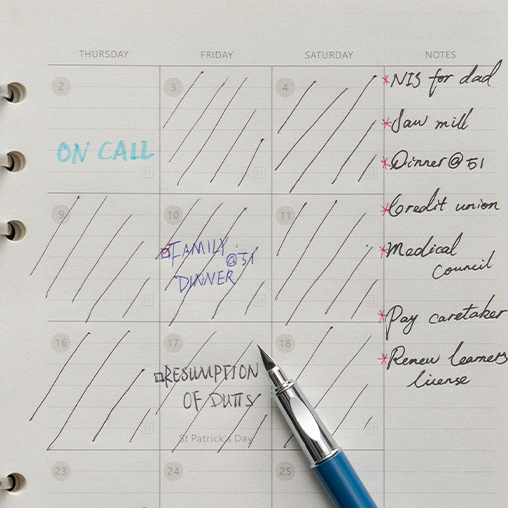 THURSDAY FRIDAY SATURDAY NOTES
2 3 4
ON CALL
9 10 11
FAMILY
@ 51
DINNER
16 17 18
RESUMPTION
OF DUTIS
St Patrick's Day
23 24 25
*NIS for dad
*Saw mill
*Dinner @ 51
*Credit union
*Medical
Council
*Pay caretaker
*Renew learners
license